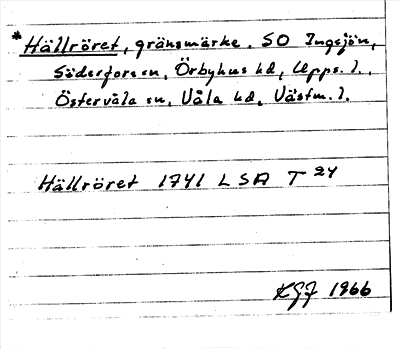 * Hällröret, gränsmärke. SO Ingsjön,
Söderfors sn, Örbyhus hd, Upps. l.,
Östervåla sn, Våla hd, Västm. l.
Hällröret 1741 LSA T 24
KGJ 1966